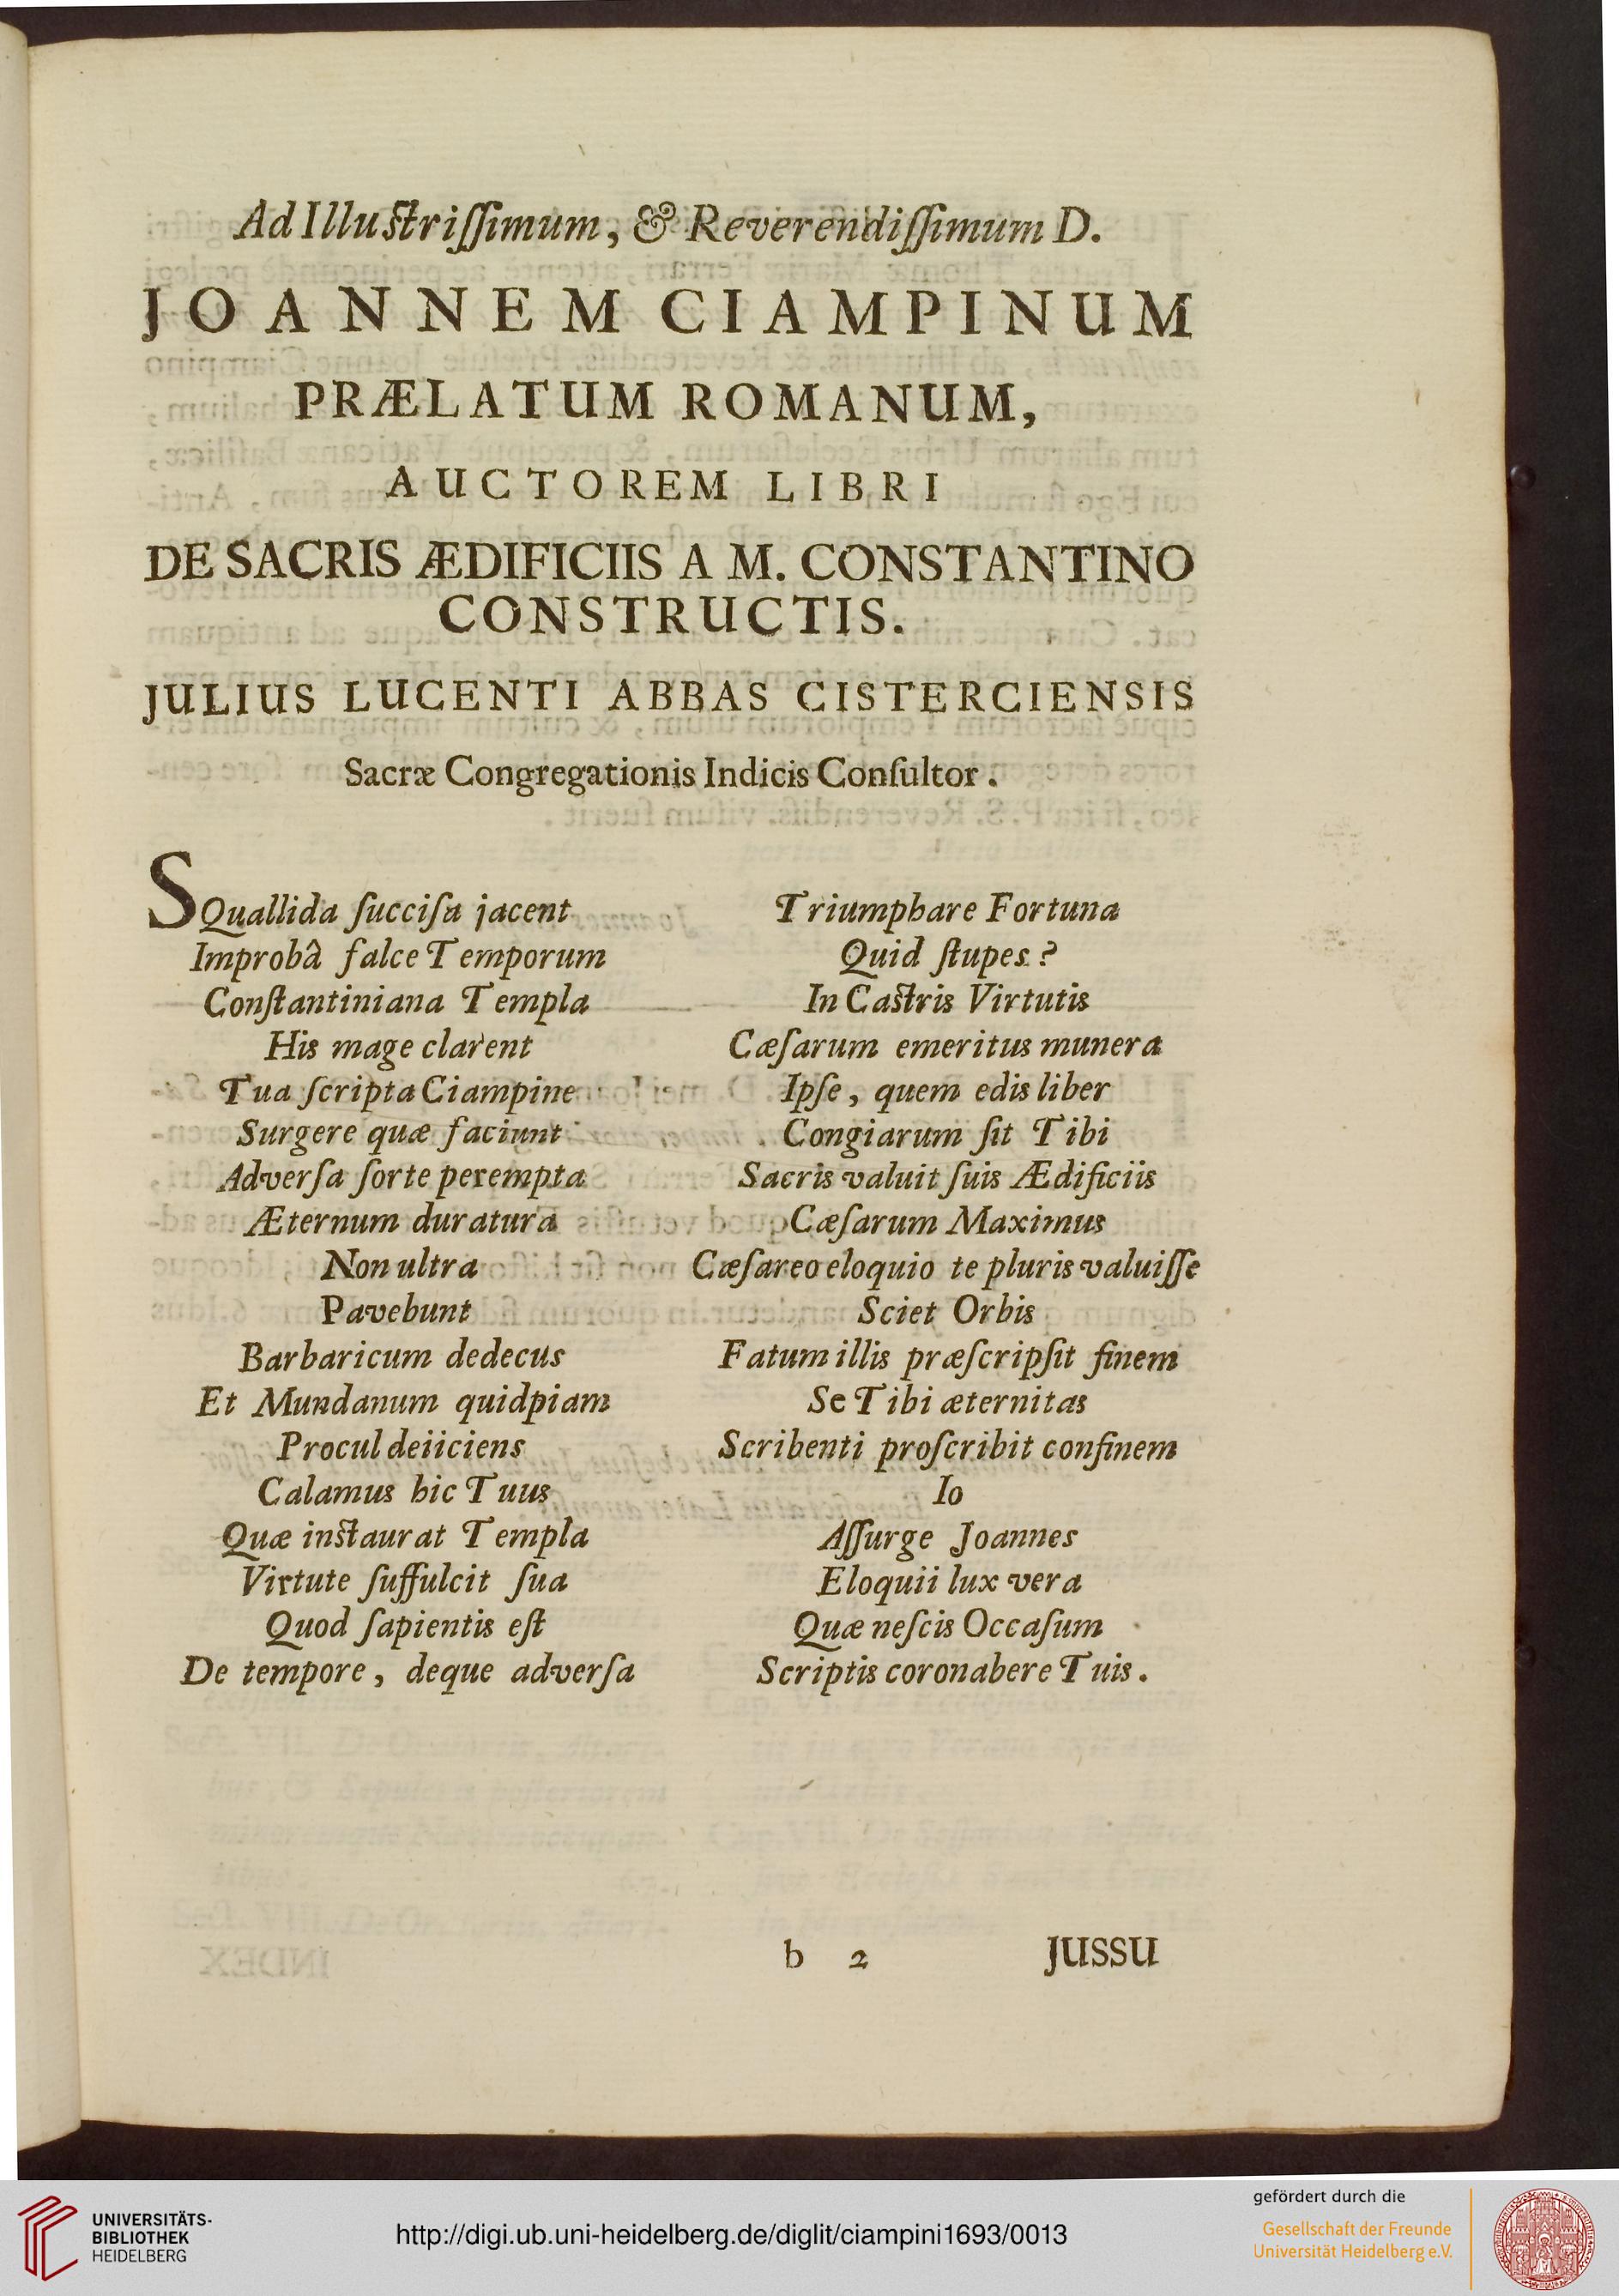 Ad Illuſtriſſimum, & Reverendiſſimum D.
JOANNEM CIAMPINUM
PRÆLATUM ROMANUM,
AUCTOREM LIBRI
DE SACRIS ÆDIFICIIS A M. CONSTANTINO
CONSTRUCTIS.
JULIUS LUCENTI ABBAS CISTERCIENSIS
Sacræ Congregationis Indicis Conſultor.
SQuallida ſucciſa jacent
Improbâ falce Temporum
Conſtantiniana Templa
His mage clarent
Tua ſcripta Ciampine
Surgere quæ faciunt
Adverſa ſorte perempta
Æternum duratura
Non ultra
Pavebunt
Barbaricum dedecus
Et Mundanum quidpiam
Procul deiiciens
Calamus hic Tuus
Quæ inſtaurat Templa
Virtute ſuffulcit ſua
Quod ſapientis eſt
De tempore, deque adverſa
Triumphare Fortuna
Quid ſtupes?
In Caſtris Virtutis
Cæſarum emeritus munera
Ipſe, quem edis liber
Congiarum ſit Tibi
Sacris valuit ſuis Ædificiis
Cæſarum Maximus
Cæſareo eloquio te pluris valuiſſe
Sciet Orbis
Fatum illis præſcripſit finem
Se Tibi æternitas
Scribenti proſcribit confinem
Io
Aſſurge Joannes
Eloquii lux vera
Quæ neſcis Occaſum
Scriptis coronabere Tuis.
b 2 JUSSU
UNIVERSITÄTS-
BIBLIOTHEK
HEIDELBERG
http://digi.ub.uni-heidelberg.de/diglit/ciampini1693/0013
gefördert durch die
Gesellschaft der Freunde
Universität Heidelberg e.V.